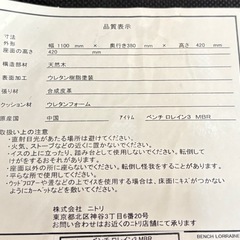 品質表示
寸法
外形 幅 1100 mm × 奥行き390 mm × 高さ 420 mm
座面の高さ 420 mm
構造部材 天然木
表面加工 ウレタン樹脂塗装
張り材 合成皮革
クッション材 ウレタンフォーム
原産国 中国 アイテム ベンチ ロレイン3 MBR
取扱い上の注意
・直射日光があたる場所は避けてください。
・火気、ストーブなどの近くに置かないでください。
・イスの上に立ったり、踏み台として使用しないでください。転倒して
けがをするおそれがあります。
・床面の平らな所に置いてください。不安定な所で使用しますと、
転倒してけがをするおそれがあります。
・ウッドフロアーや畳などの上でイスを使用する場合は、床面にキズがつかない
ようにカーペットなどを敷いてください。
株式会社 ニトリ
東京都北区神谷3丁目6番20号
お問い合わせはお近くのニトリ店舗にて承ります。
ベンチ ロレイン3 MBR
BENCH LORRAINE